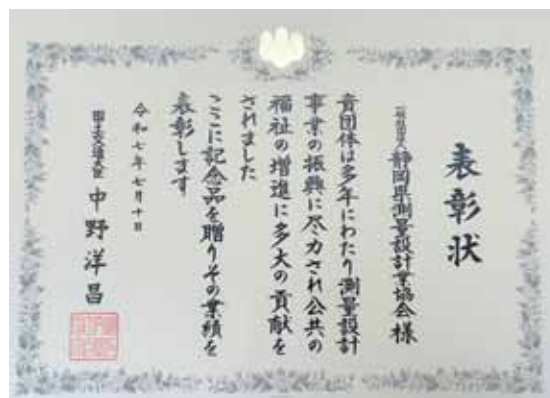 表彰状
一般社団法人 静岡県測量設計業協会 様
貴団体は多年にわたり測量設計
事業の振興に尽力され公共の
福祉の増進に多大の貢献を
されました
ここに記念品を贈りその業績を
表彰します
令和七年七月十日
国土交通大臣 中野洋昌